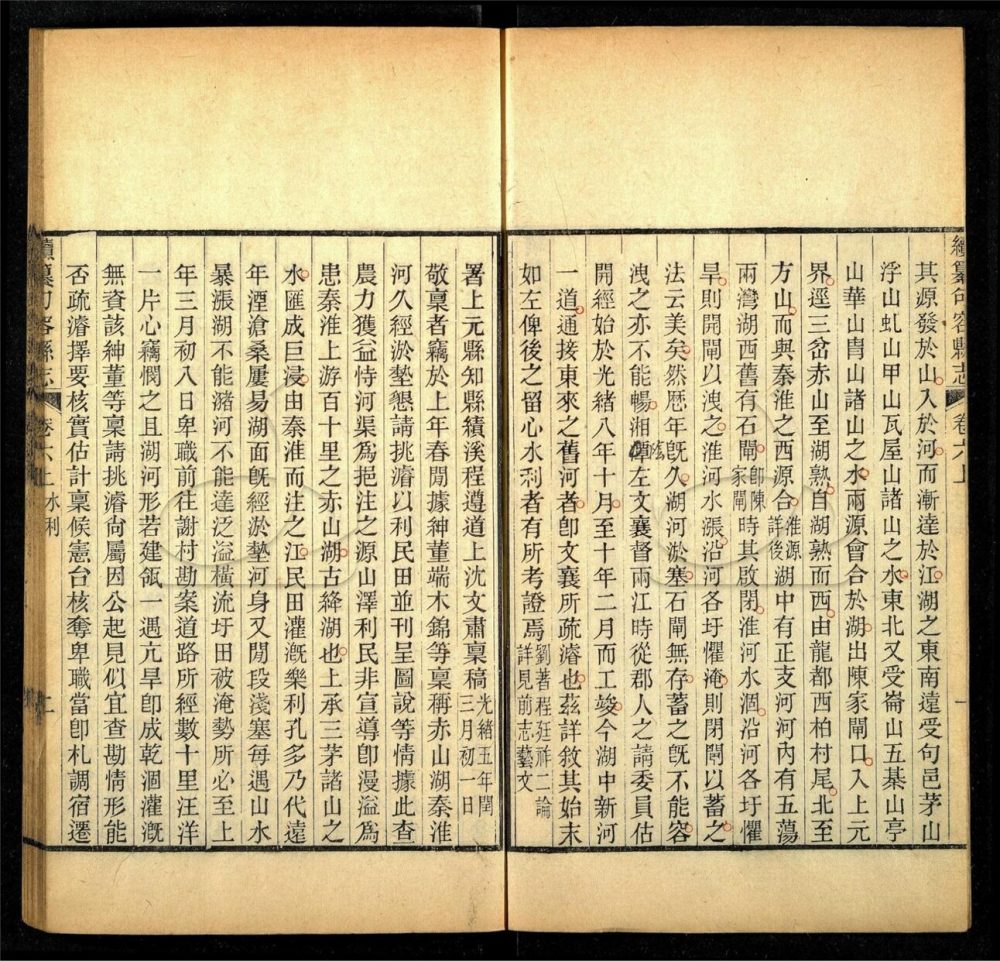 續纂句容縣志 卷六上 一
其源發於山入於河而漸達於江湖之東南遠受句邑茅山
浮山虬山甲山瓦屋山諸山之水東北又受崙山五棊山亭
山華山胄山諸山之水兩源會合於湖出陳家閘口入上元
界逕三岔赤山至湖熟自湖熟而西由龍都西柏村尾北至
方山而與秦淮之西源合淮源詳後湖中有正支河河內有五蕩
兩灣湖西舊有石閘卽陳家閘時其啟閉淮河水涸沿河各圩懼
旱則開閘以洩之淮河水漲沿河各圩懼淹則閉閘以蓄之
法云美矣然厯年旣久湖河淤塞石閘無存蓄之旣不能容
洩之亦不能暢湘潭左文襄督兩江時從郡人之請委員估
開經始於光緒八年十月至十年二月而工竣今湖中新河
一道通接東來之舊河者卽文襄所疏濬也茲詳敘其始末
如左俾後之留心水利者有所考證焉劉著程廷祚二論詳見前志藝文
署上元縣知縣績溪程遵道上沈文肅稟稿光緒五年閏三月初一日
敬稟者竊於上年春閒據紳董端木錦等稟稱赤山湖秦淮
河久經淤墊懇請挑濬以利民田並刊呈圖說等情據此查
農力獲益恃河渠爲挹注之源山澤利民非宣導卽漫溢爲
患秦淮上游百十里之赤山湖古絳湖也上承三茅諸山之
水匯成巨浸由秦淮而注之江民田灌漑樂利孔多乃代遠
年湮滄桑屢易湖面旣經淤墊河身又閒段淺塞每遇山水
暴漲湖不能瀦河不能達泛溢橫流圩田被淹勢所必至上
年三月初八日卑職前往謝村勘案道路所經數十里汪洋
一片心竊憫之且湖河形若建瓴一遇亢旱卽成乾涸灌漑
無資該紳董等稟請挑濬尙屬因公起見似宜查勘情形能
否疏濬擇要核實估計稟候憲台核奪卑職當卽札調宿遷
續纂句容縣志 卷六上 水利 二